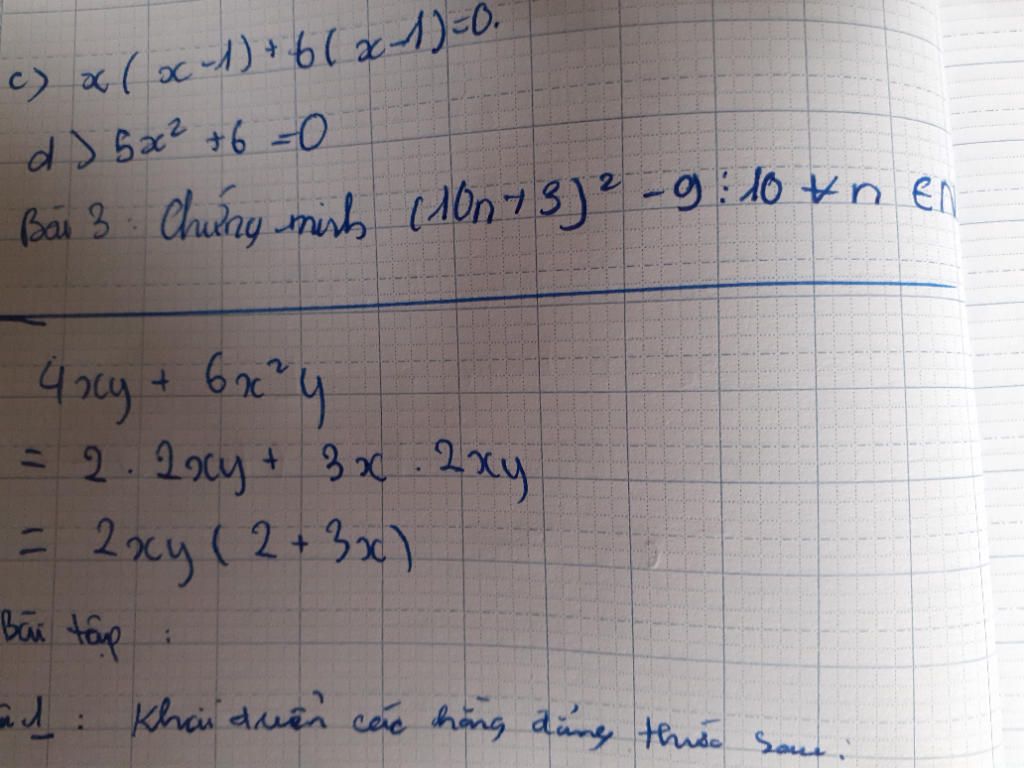 c) x( x-1) + 6( x-1)=0.
d) 5x² +6 =0
Bài 3 : Chứng minh (10n+3)² - 9 ⋮ 10 ∀n ∈N
4xy + 6x²y
= 2 . 2xy + 3x . 2xy
= 2xy ( 2 + 3x)
Bài tập :
1 : Khai triển các hằng đẳng thức sau :